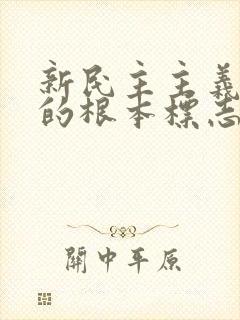 新民主主義
的根本標志
關中平原